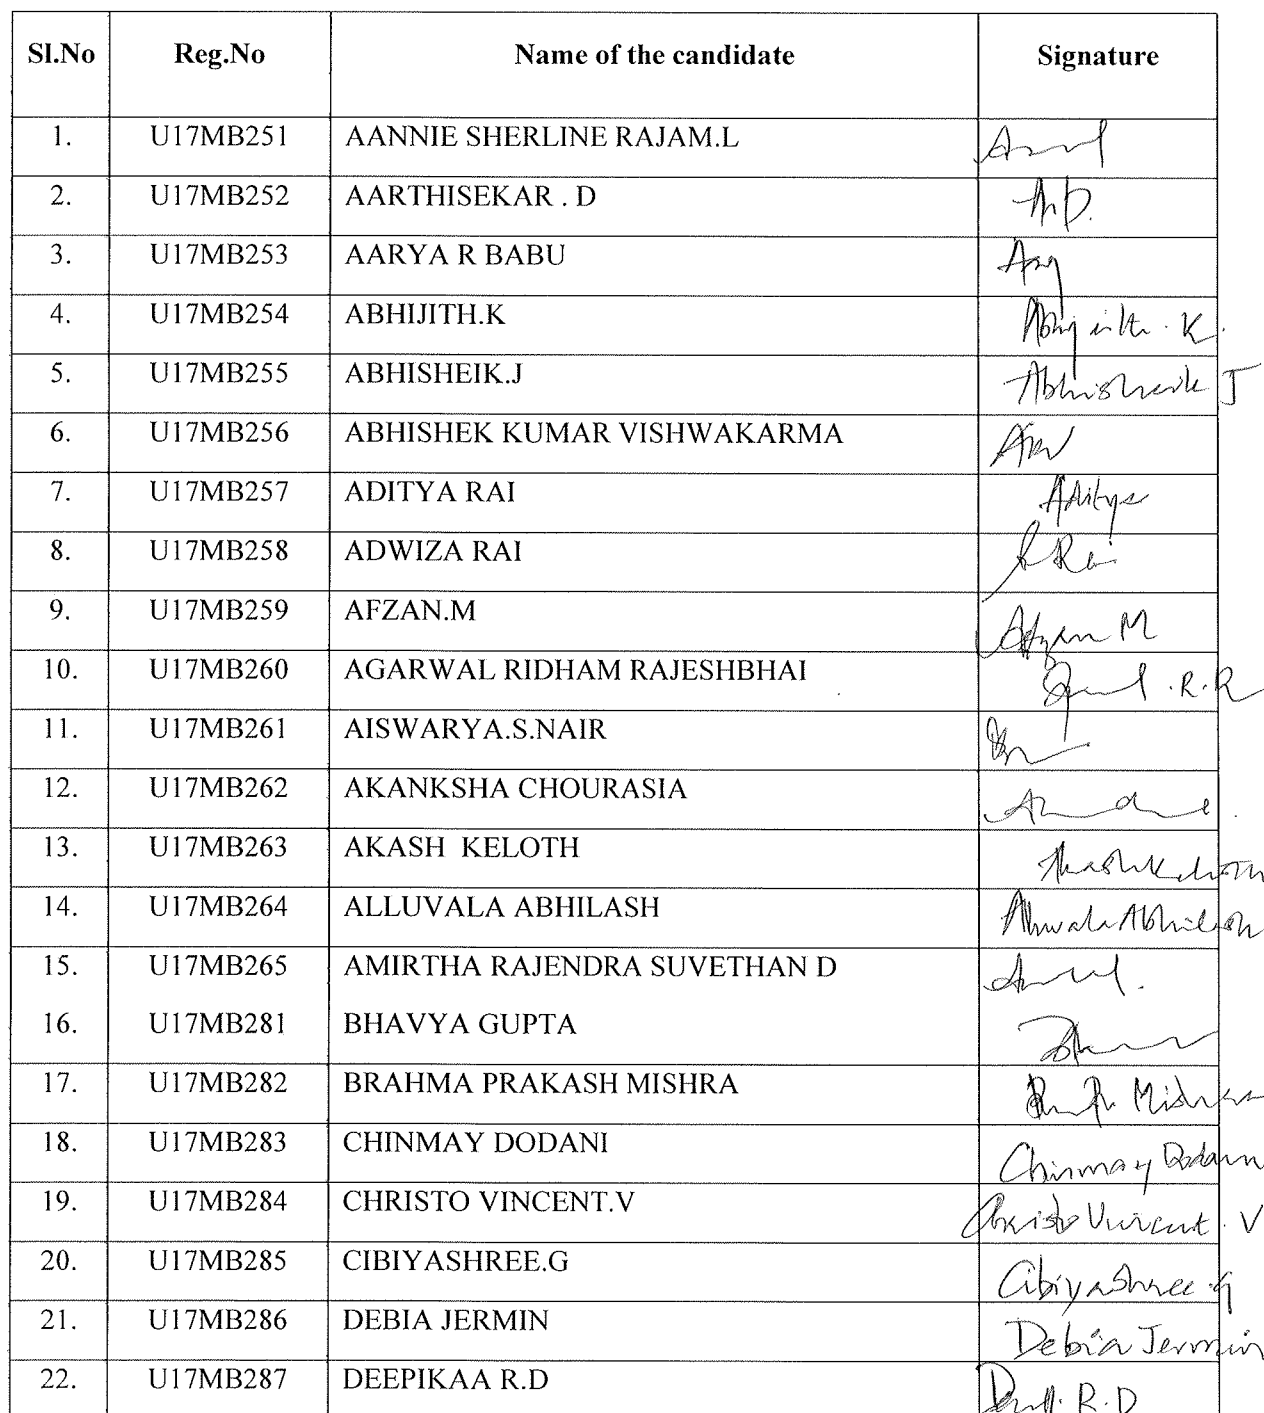 Sl.No Reg.No Name of the candidate Signature
1. U17MB251 AANNIE SHERLINE RAJAM.L
2. U17MB252 AARTHISEKAR . D
3. U17MB253 AARYA R BABU
4. U17MB254 ABHIJITH.K Abhijith . K.
5. U17MB255 ABHISHEIK.J Abhisheik J
6. U17MB256 ABHISHEK KUMAR VISHWAKARMA
7. U17MB257 ADITYA RAI Aditya
8. U17MB258 ADWIZA RAI A Rai
9. U17MB259 AFZAN.M Afzan M
10. U17MB260 AGARWAL RIDHAM RAJESHBHAI .R.R
11. U17MB261 AISWARYA.S.NAIR
12. U17MB262 AKANKSHA CHOURASIA
13. U17MB263 AKASH KELOTH Akash Keloth
14. U17MB264 ALLUVALA ABHILASH Alluvala Abhilash
15. U17MB265 AMIRTHA RAJENDRA SUVETHAN D
16. U17MB281 BHAVYA GUPTA
17. U17MB282 BRAHMA PRAKASH MISHRA Mishra
18. U17MB283 CHINMAY DODANI Chinmay Dodani
19. U17MB284 CHRISTO VINCENT.V Christo Vincent . V
20. U17MB285 CIBIYASHREE.G Cibiyashree .G
21. U17MB286 DEBIA JERMIN Debia Jermin
22. U17MB287 DEEPIKAA R.D R.D